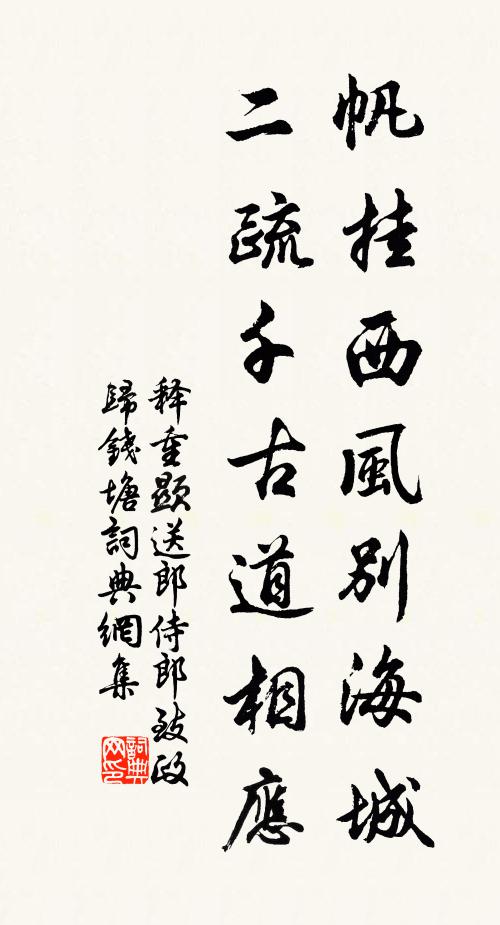 帆挂西風別海城
二疏千古道相應
释重顯送郎侍郎致政
歸錢塘詞典網集
詞典网印